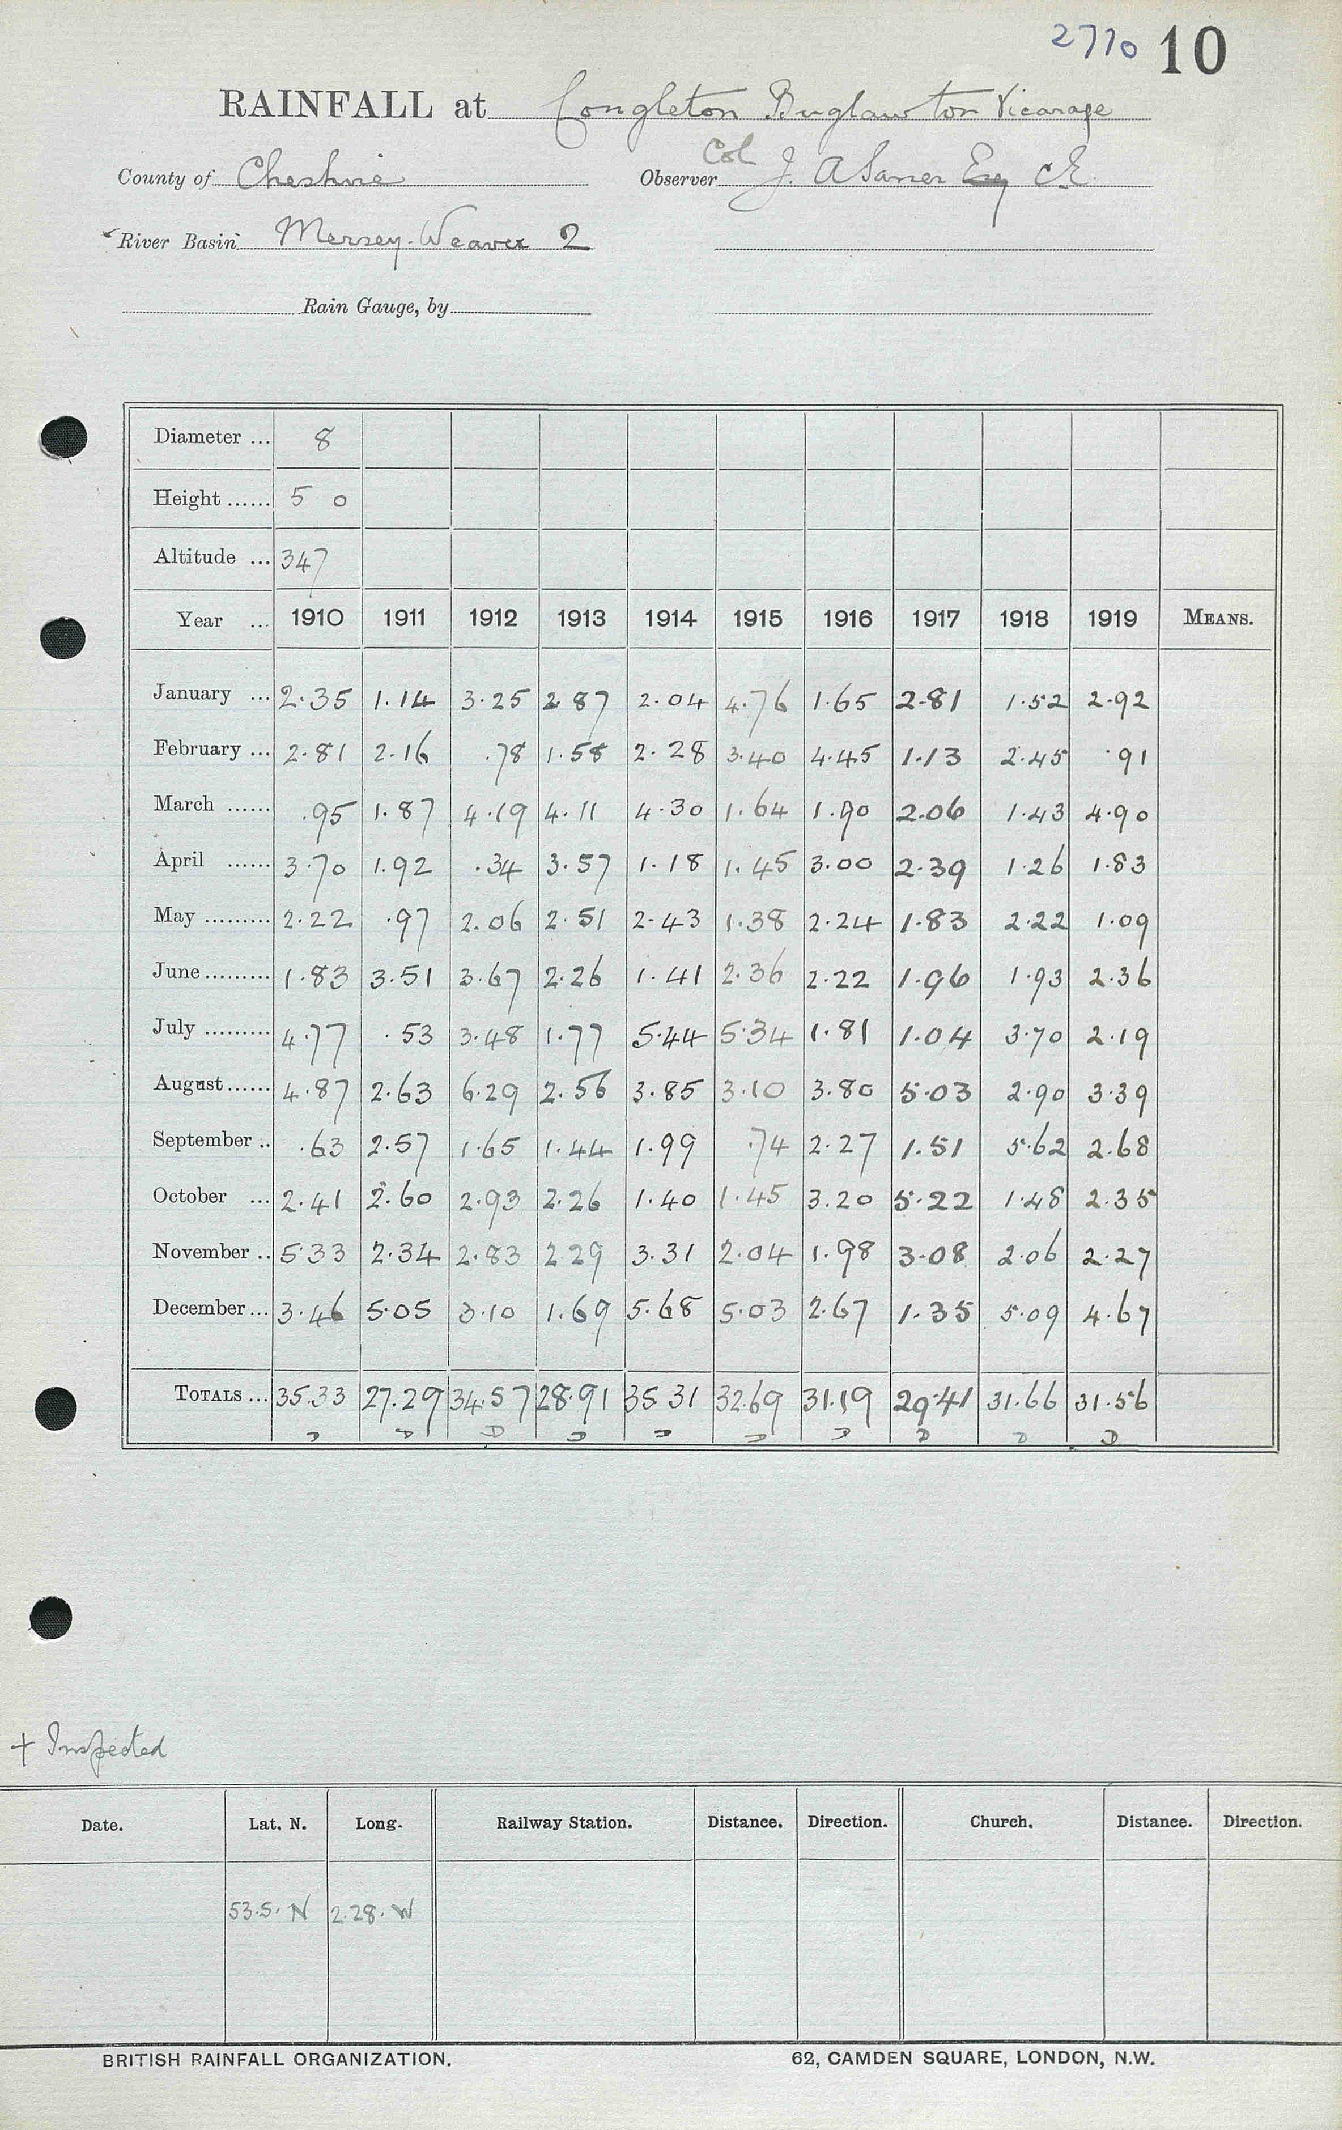 2770 10
RAINFALL at Congleton Buglawton Vicarage
County of Cheshire Observer Col J. A Saner Esq CE
River Basin Mersey-Weaver 2
Rain Gauge, by
Diameter ... 8
Height ...... 5 0
Altitude ... 347
Year ... 1910 1911 1912 1913 1914 1915 1916 1917 1918 1919 MEANS.
January ... 2.35 1.14 3.25 2.87 2.04 4.76 1.65 2.81 1.52 2.92
February ... 2.81 2.16 .78 1.58 2.28 3.40 4.45 1.13 2.45 .91
March ...... .95 1.87 4.19 4.11 4.30 1.64 1.90 2.06 1.43 4.90
April ...... 3.70 1.92 .34 3.57 1.18 1.45 3.00 2.39 1.26 1.83
May ......... 2.22 .97 2.06 2.51 2.43 1.38 2.24 1.83 2.22 1.09
June ......... 1.83 3.51 3.67 2.26 1.41 2.36 2.22 1.96 1.93 2.36
July ......... 4.77 .53 3.48 1.77 5.44 5.34 1.81 1.04 3.70 2.19
August ...... 4.87 2.63 6.29 2.56 3.85 3.10 3.80 5.03 2.90 3.39
September .. .63 2.57 1.65 1.44 1.99 .74 2.27 1.51 5.62 2.68
October ... 2.41 2.60 2.93 2.26 1.40 1.45 3.20 5.22 1.48 2.35
November .. 5.33 2.34 2.83 2.29 3.31 2.04 1.98 3.08 2.06 2.27
December ... 3.46 5.05 3.10 1.69 5.68 5.03 2.67 1.35 5.09 4.67
TOTALS ... 35.33 27.29 34.57 28.91 35.31 32.69 31.19 29.41 31.66 31.56
D D D D D D D D D D
+ Inspected
Date. Lat. N. Long. Railway Station. Distance. Direction. Church. Distance. Direction.
53.5. N 2.28. W
BRITISH RAINFALL ORGANIZATION. 62, CAMDEN SQUARE, LONDON, N.W.